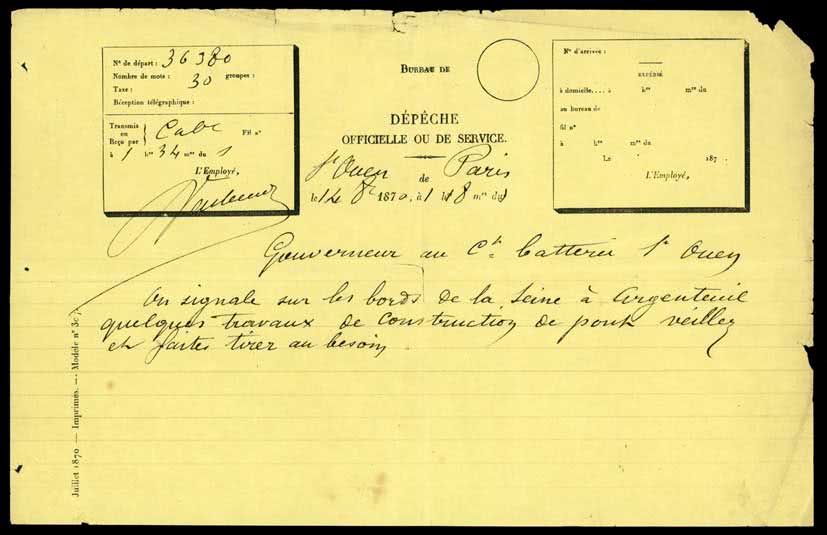 N° de départ : 36380
Nombre de mots : 30 groupes :
Taxe :
Réception télégraphique :
Transmis
ou
Reçu par
Fil n°
à 1 h.es 34 m.es du s
L'Employé,
BUREAU DE
DÉPÊCHE
OFFICIELLE OU DE SERVICE.
St Ouen de Paris
le 14 8e 1870, à 1 h 18 m.es du s
N° d'arrivée :
EXPÉDIÉ
à domicile.... à h.es m.es du
au bureau de
fil n°
à h.es m.es du
Le 187 .
L'Employé,
Gouverneur au Ct batterie St Ouen
On signale sur les bords de la Seine à Argenteuil
quelques travaux de construction de pont veillez
et faites tirer au besoin
Juillet 1870 — Imprimés. — Modèle n° 30